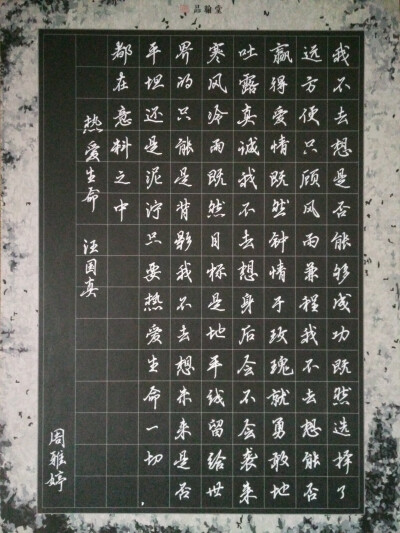 品翰堂
我不去想是否能够成功既然选择了
远方便只顾风雨兼程我不去想能否
赢得爱情既然钟情于玫瑰就勇敢地
吐露真诚我不去想身后会不会袭来
寒风冷雨既然目标是地平线留给世
界的只能是背影我不去想未来是否
平坦还是泥泞只要热爱生命一切
都在意料之中
热爱生命 汪国真
周雅婷